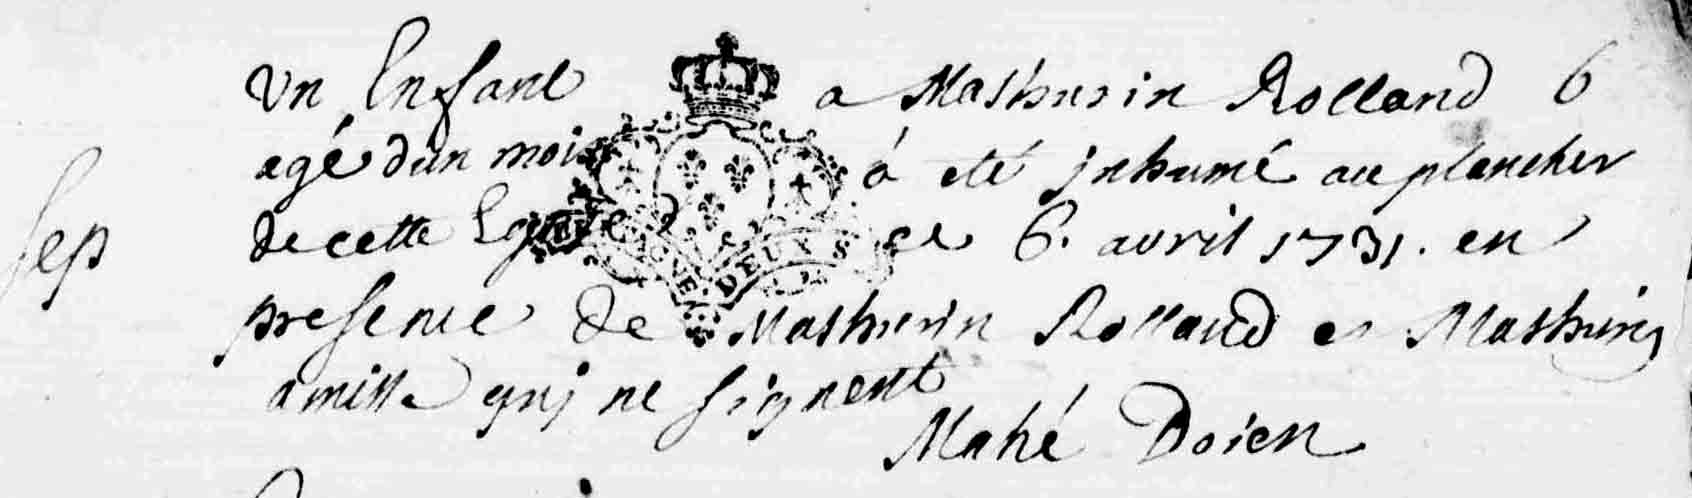 un Enfant a Mathurin Rolland 6
agé dun mois à eté inhumé au plancher
sep
de cette Eglise ce 6. avril 1731. en
presence de Mathurin Rolland et Mathurin
qui ne signent
Mahé Doien
DEUX S